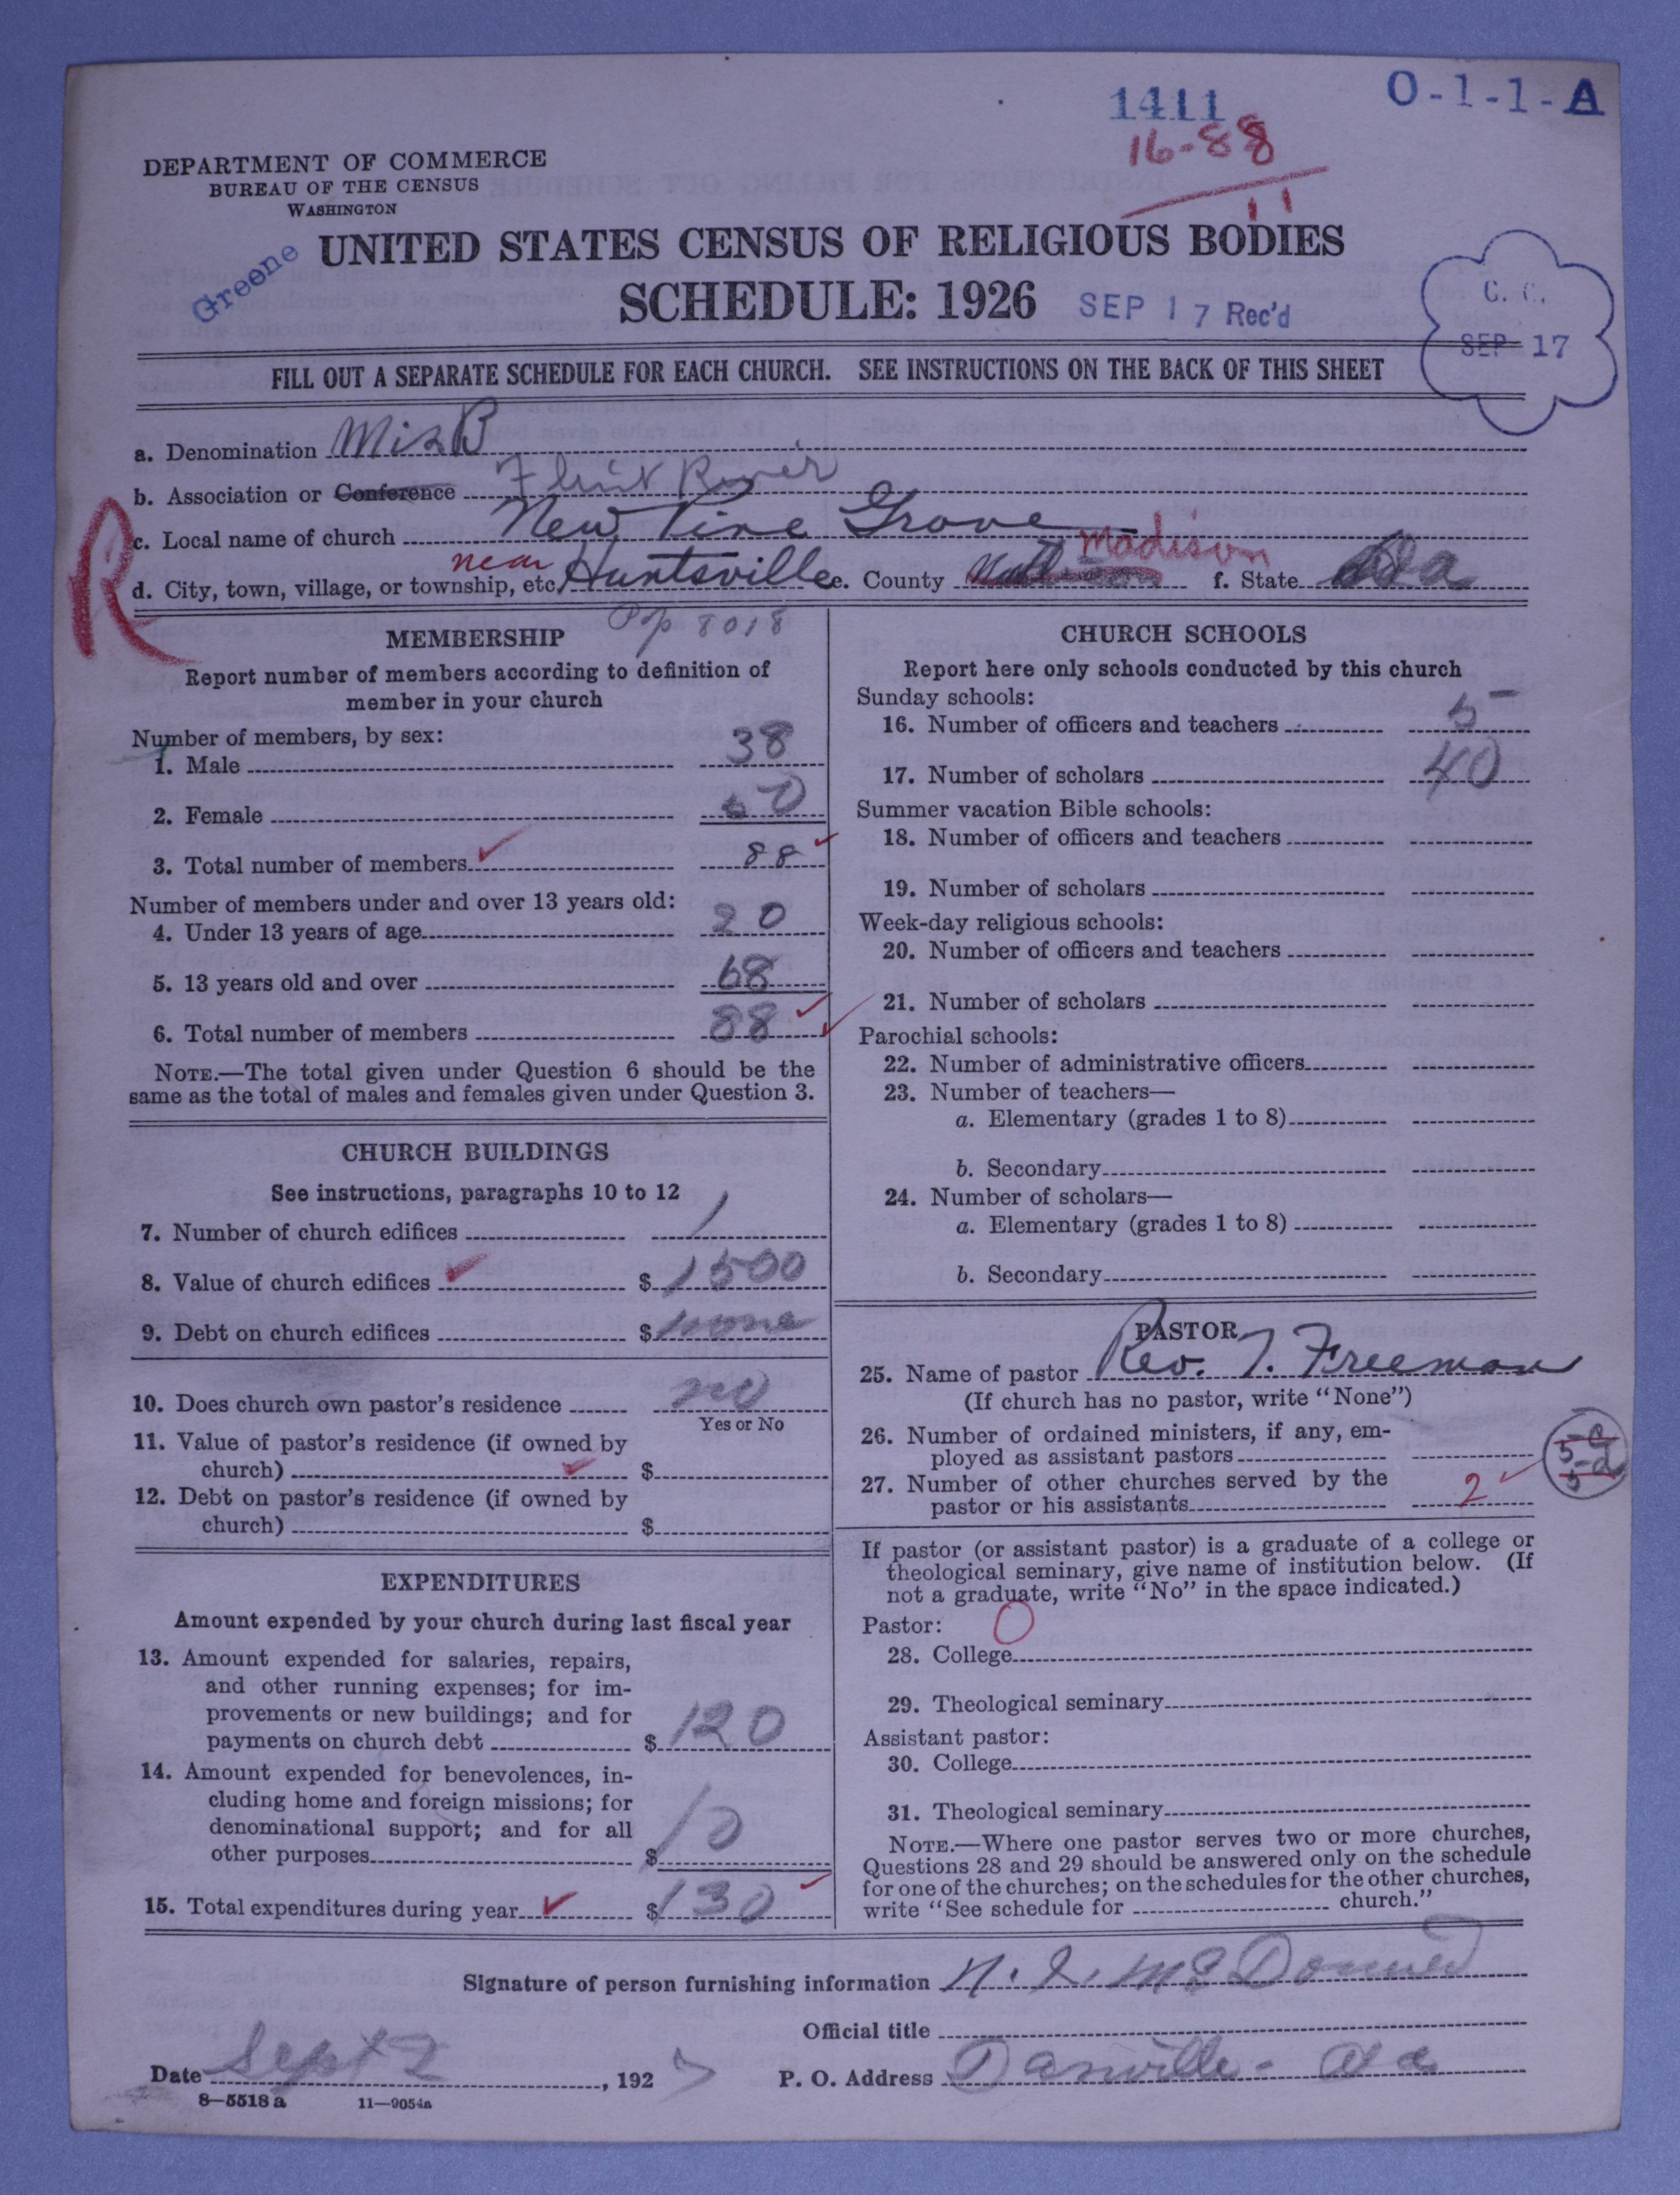 1411
O-1-1-A
16-88
11
DEPARTMENT OF COMMERCE
BUREAU OF THE CENSUS
WASHINGTON
Greene
UNITED STATES CENSUS OF RELIGIOUS BODIES
SCHEDULE: 1926
SEP 17 Rec'd
C. C.
SEP 17
FILL OUT A SEPARATE SCHEDULE FOR EACH CHURCH. SEE INSTRUCTIONS ON THE BACK OF THIS SHEET
a. Denomination Mis B
b. Association or Conference Flint River
R
c. Local name of church New Pine Grove
d. City, town, village, or township, etc. near Huntsville e. County Madison f. State Ala
MEMBERSHIP
Pop 8018
Report number of members according to definition of
member in your church
Number of members, by sex:
1. Male 38
2. Female 50
3. Total number of members 88
Number of members under and over 13 years old:
4. Under 13 years of age 20
5. 13 years old and over 68
6. Total number of members 88
NOTE.—The total given under Question 6 should be the
same as the total of males and females given under Question 3.
CHURCH BUILDINGS
See instructions, paragraphs 10 to 12
7. Number of church edifices 1
8. Value of church edifices $ 1500
9. Debt on church edifices $ none
10. Does church own pastor's residence no
Yes or No
11. Value of pastor's residence (if owned by
church) $
12. Debt on pastor's residence (if owned by
church) $
EXPENDITURES
Amount expended by your church during last fiscal year
13. Amount expended for salaries, repairs,
and other running expenses; for im-
provements or new buildings; and for
payments on church debt $ 120
14. Amount expended for benevolences, in-
cluding home and foreign missions; for
denominational support; and for all
other purposes $ 10
15. Total expenditures during year $ 130
CHURCH SCHOOLS
Report here only schools conducted by this church
Sunday schools:
16. Number of officers and teachers 5
17. Number of scholars 40
Summer vacation Bible schools:
18. Number of officers and teachers
19. Number of scholars
Week-day religious schools:
20. Number of officers and teachers
21. Number of scholars
Parochial schools:
22. Number of administrative officers
23. Number of teachers—
a. Elementary (grades 1 to 8)
b. Secondary
24. Number of scholars—
a. Elementary (grades 1 to 8)
b. Secondary
PASTOR
25. Name of pastor Rev. T. Freeman
(If church has no pastor, write "None")
26. Number of ordained ministers, if any, em-
ployed as assistant pastors
27. Number of other churches served by the
pastor or his assistants 2
If pastor (or assistant pastor) is a graduate of a college or
theological seminary, give name of institution below. (If
not a graduate, write "No" in the space indicated.)
Pastor: O
28. College
29. Theological seminary
Assistant pastor:
30. College
31. Theological seminary
NOTE.—Where one pastor serves two or more churches,
Questions 28 and 29 should be answered only on the schedule
for one of the churches; on the schedules for the other churches,
write "See schedule for church."
Signature of person furnishing information
Official title
Date Sept 2, 1927
P. O. Address Danville - Ala
8—5518 a
11—9054a